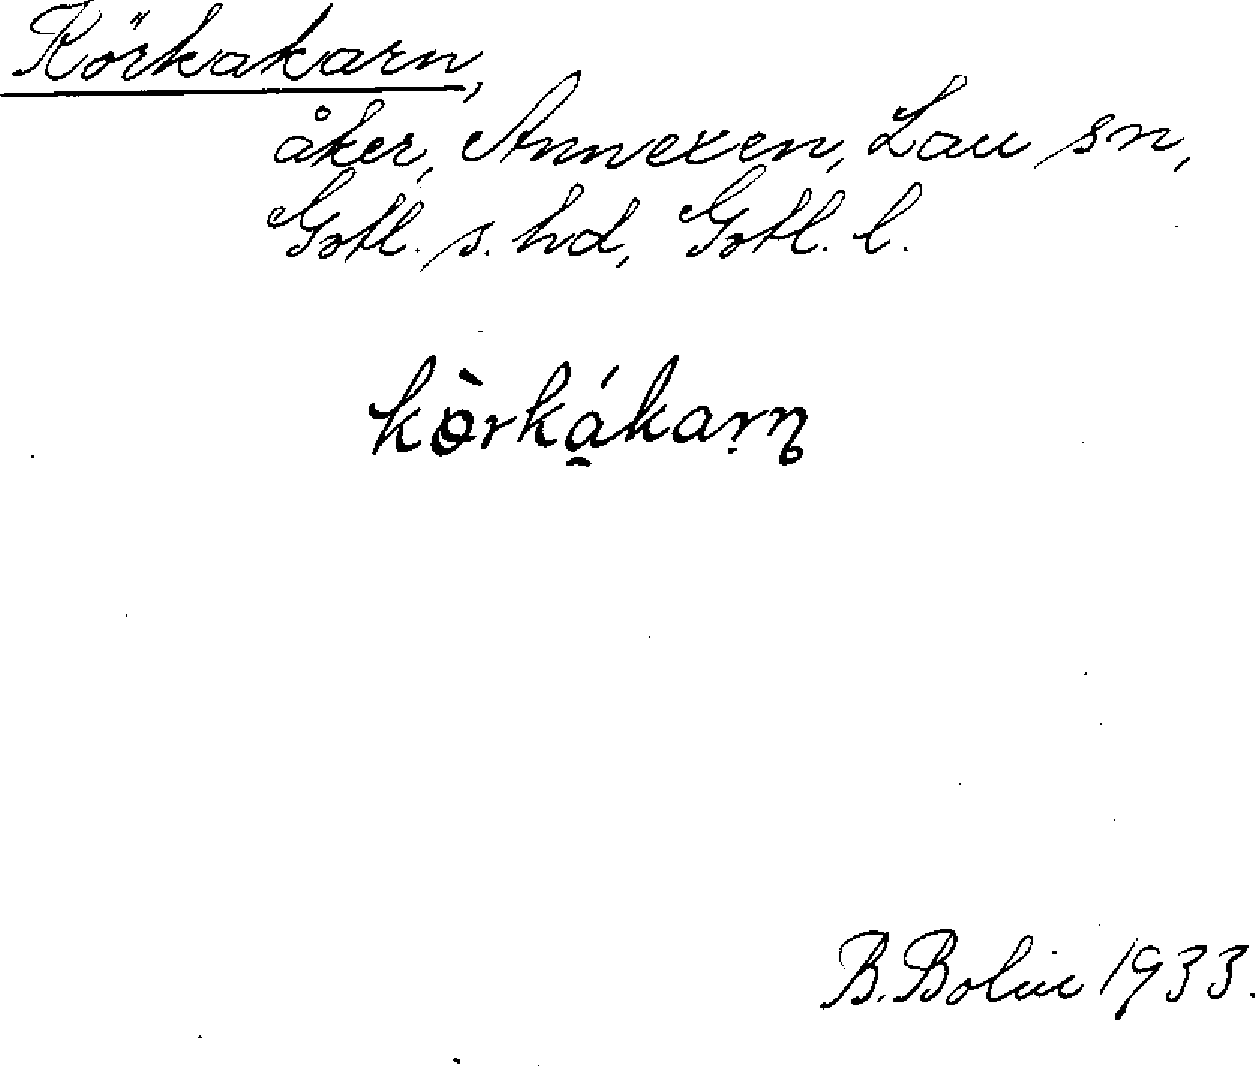 Körkakarn,
åker, Annexen, Lau sn,
Gotl. s. hd, Gotl. l.
kö̀rkákarn
B. Bolin 1933.